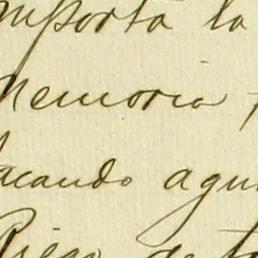 importa la
Memoria
acando agu
Riego de